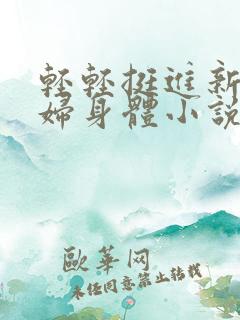 輕輕挺進新
婦身體小說
歐華网
未经同意禁止转载